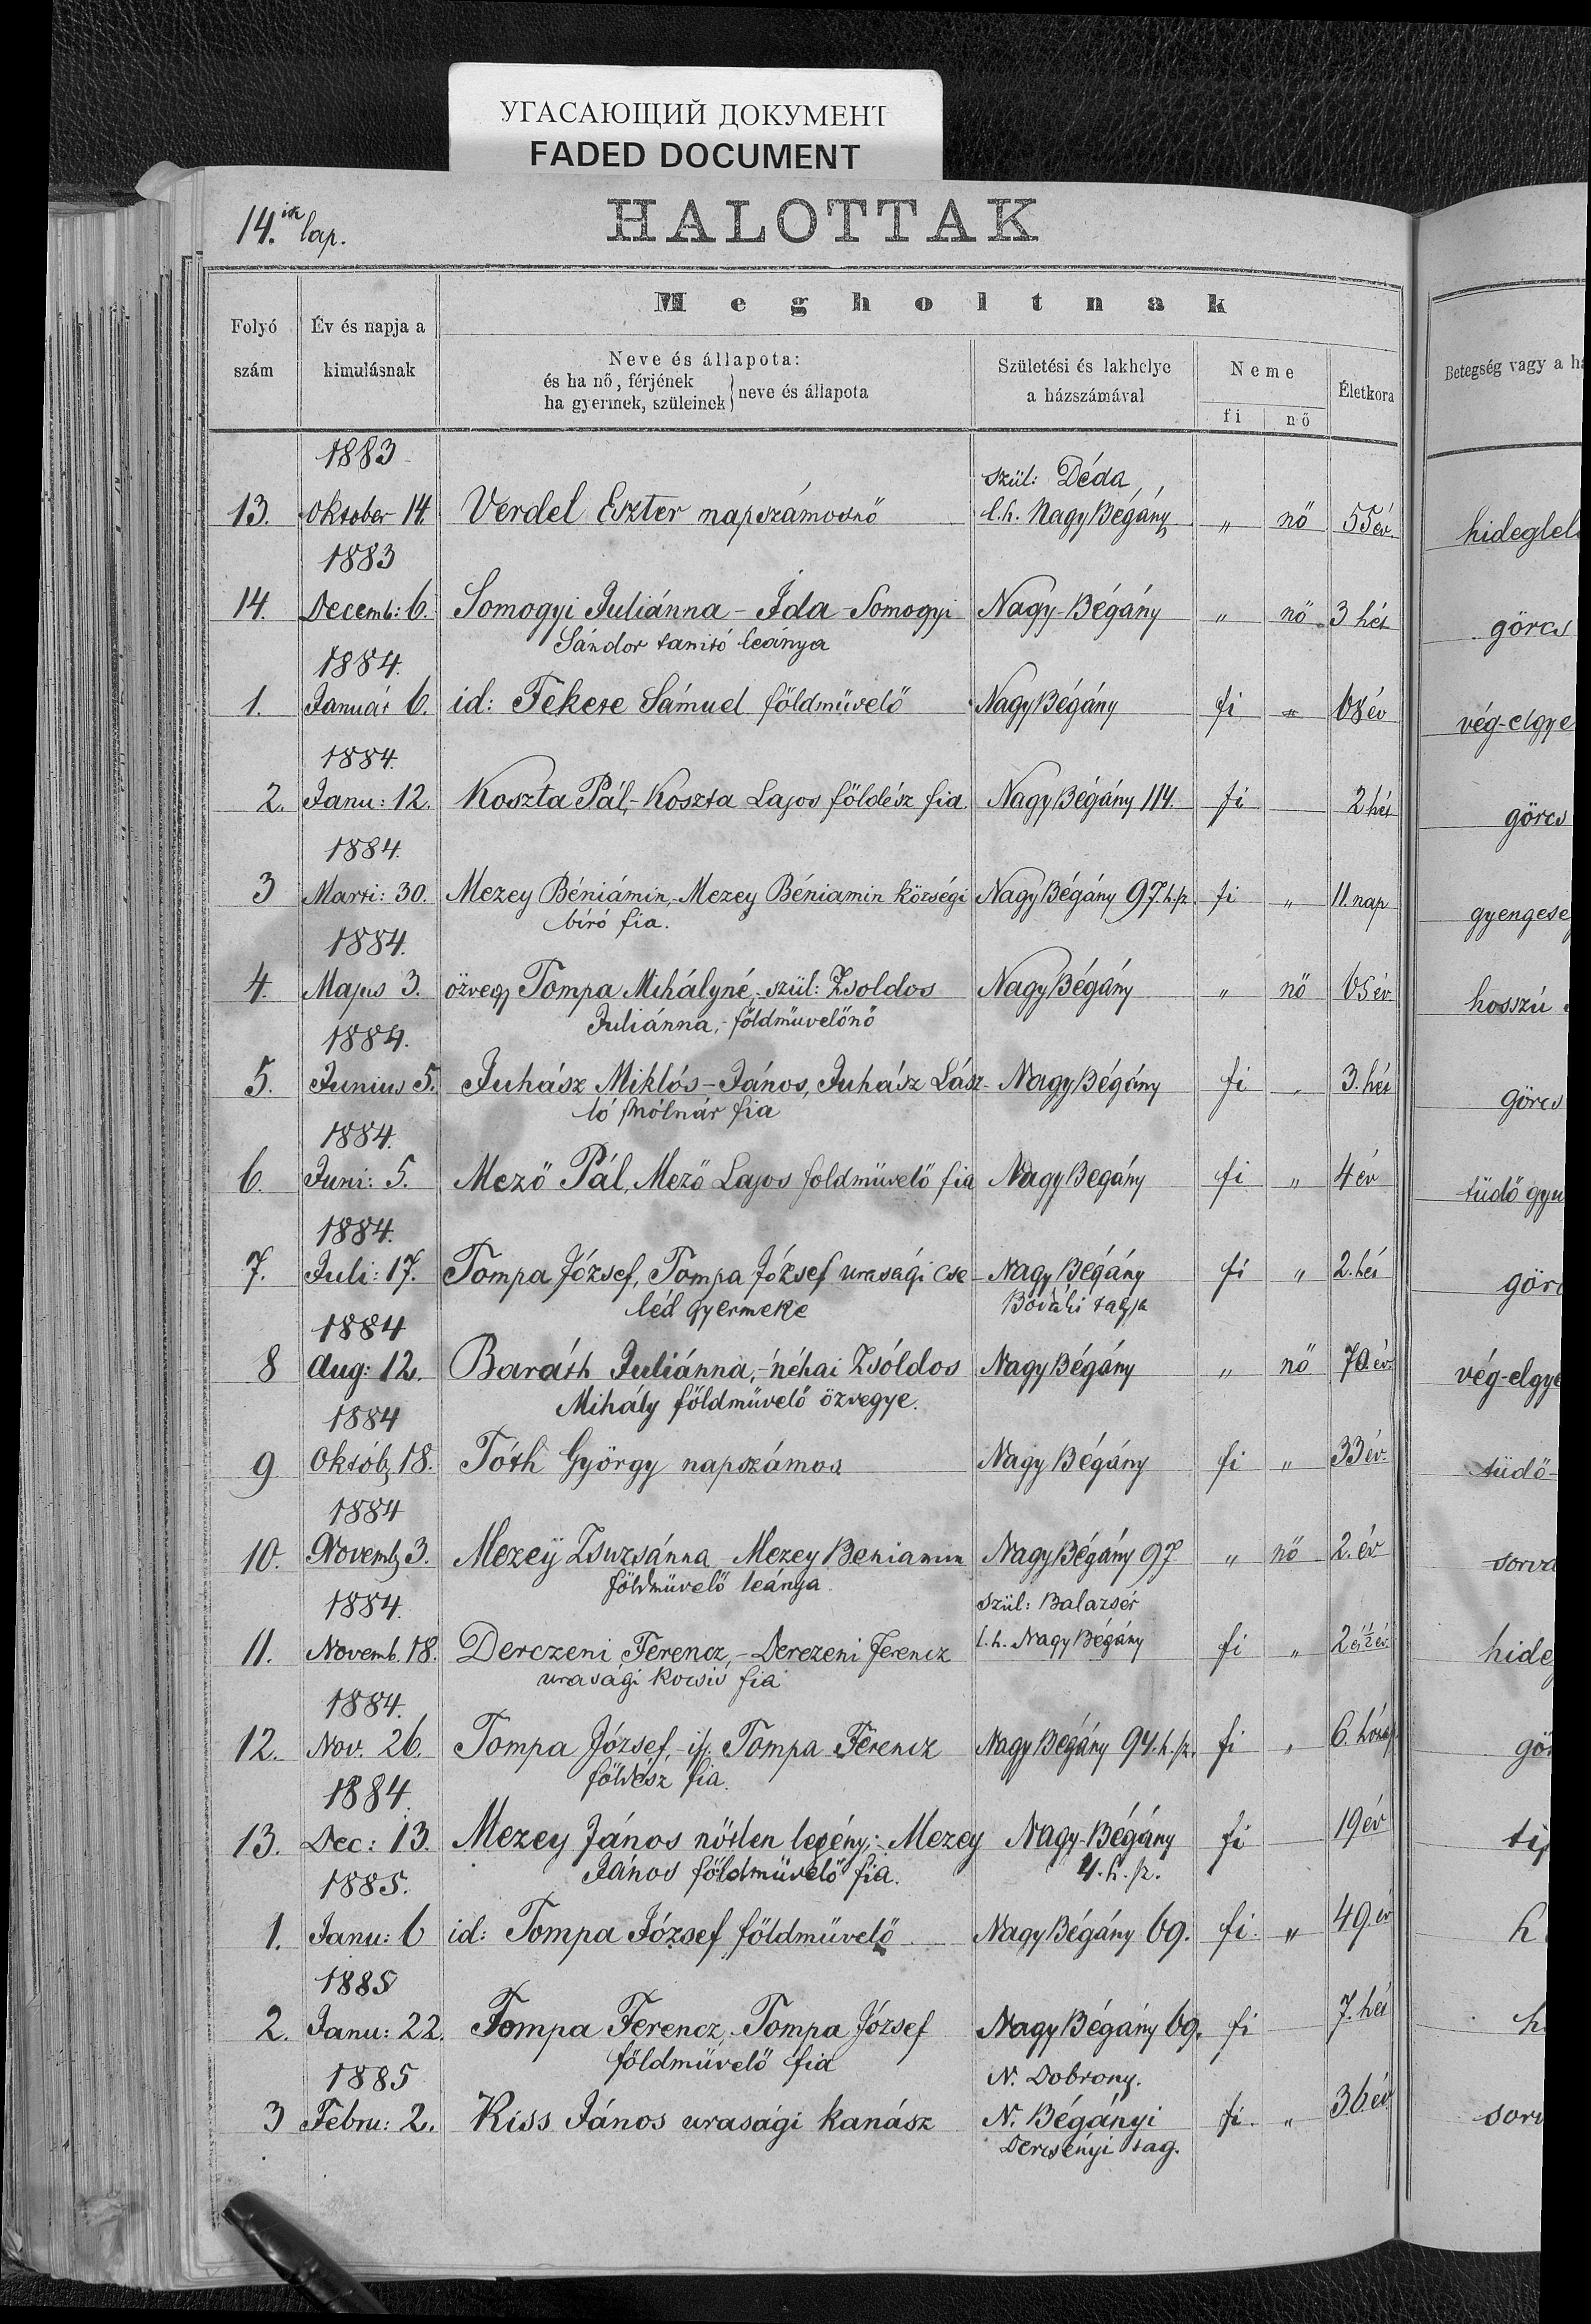 УГАСАЮЩИЙ ДОКУМЕНТ
FADED DOCUMENT
14.ik lap.
HALOTTAK
Megholtnak
Folyó szám
Év és napja a kimulásnak
Neve és állapota:
és ha nő, férjének
ha gyermek, szüleinek } neve és állapota
Születési és lakhelye
a házszámával
Neme
fi nő
Életkora
Betegség vagy a
1883
szül: Déda
13. Oktober 14. Verdel Eszter napszámosnő l.h. Nagy Bégány " nő 55 év.
1883
14. Decemb: 6. Somogyi Juliánna - Ida - Somogyi Nagy-Bégány " nő 3 hét görcs
Sándor tanító leánya
1884.
1. Január 6. id: Fekete Sámuel földmüvelő Nagy Bégány fi " 68 év vég-elgye
1884.
2. Janu: 12. Koszta Pál,- Koszta Lajos földész fia Nagy Bégány 114. fi 2 hét görcs
1884.
3 Marti: 30. Mezey Béniámin,- Mezey Béniamin községi Nagy Bégány 97. h.sz. fi " 11. nap
biró fia.
1884.
4. Majus 3. özvegy Tompa Mihályné,- szül: Zsoldos Nagy Bégány " nő 65 év hosszú
Juliánna,- földmüvelőnő
1884.
5. Junius 5. Juhász Miklós - János, Juhász Lász- Nagy Bégány fi " 3. hét görcs
ló molnár fia
1884.
6. Juni: 5. Mező Pál, Mező Lajos foldmüvelő fia Nagy Begány fi " 4 év tüdő gyu
1884.
7. Juli: 17. Tompa József, Tompa József urasági cse- Nagy Bégány fi " 2. hét
léd gyermeke tagja
1884
8 Aug: 12. Baráth Juliánna,- néhai Zsóldos Nagy Bégány " nő 70 év. vég-elgye
Mihály földmüvelő özvegye.
1884
9 Október 18. Tóth György napszámos Nagy Bégány fi " 33 év. tüdő-
1884
10. Novemb 3. Mezey Zsuzsánna Mezey Beniamin Nagy Bégány 97 " nő 2. év
földmüvelő leánya.
1884.
szül: Balazsér
11. Novemb. 18. Derczeni Ferencz,- Derczeni Ferencz l.h. Nagy Bégány fi " 2 és 1/2 év.
urasági kocsis fia
1884.
12. Nov. 26. Tompa József,- if. Tompa Ferencz Nagy Bégány 94. h. sz. fi " 6. hónap
földész fia.
1884.
13. Dec: 13. Mezey János nőtlen legény;- Mezey Nagy-Bégány fi 19 év
János földmüvelő fia. 4. h. sz.
1885.
1. Janu: 6 id: Tompa József földmüvelő Nagy Bégány 69. fi. " 49. év
1885
2. Janu: 22. Tompa Ferencz,- Tompa József Nagy Bégány 69. fi 7. hét
földmüvelő fia
1885
N. Dobrony.
3 Febru: 2. Kiss János urasági kanász N. Bégányi fi. " 36 év
Dercsényi tag.